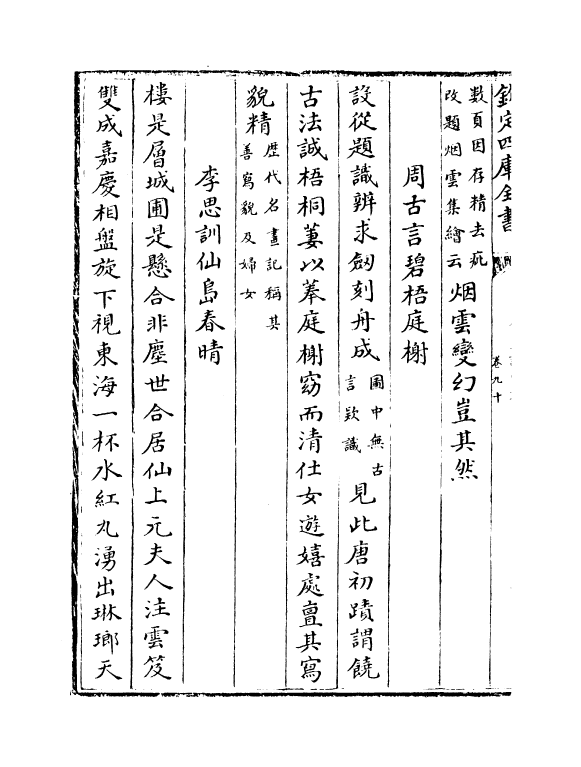 欽定四庫全書
卷九十
數頁因存精去疵
改題烟雲集繪云
烟雲變幻豈其然
周古言碧梧庭榭
設從題識辨求劔刻舟成
圖中無古
言欵識
見此唐初蹟謂饒
古法誠梧桐萋以菶庭榭窈而清仕女遊嬉處亶其寫
貌精
歴代名畫記稱其
善寫貌及婦女
李思訓仙島春晴
樓是層城圃是懸合非塵世合居仙上元夫人注雲笈
雙成嘉慶相盤旋下視東海一杯水紅丸湧出琳瑯天